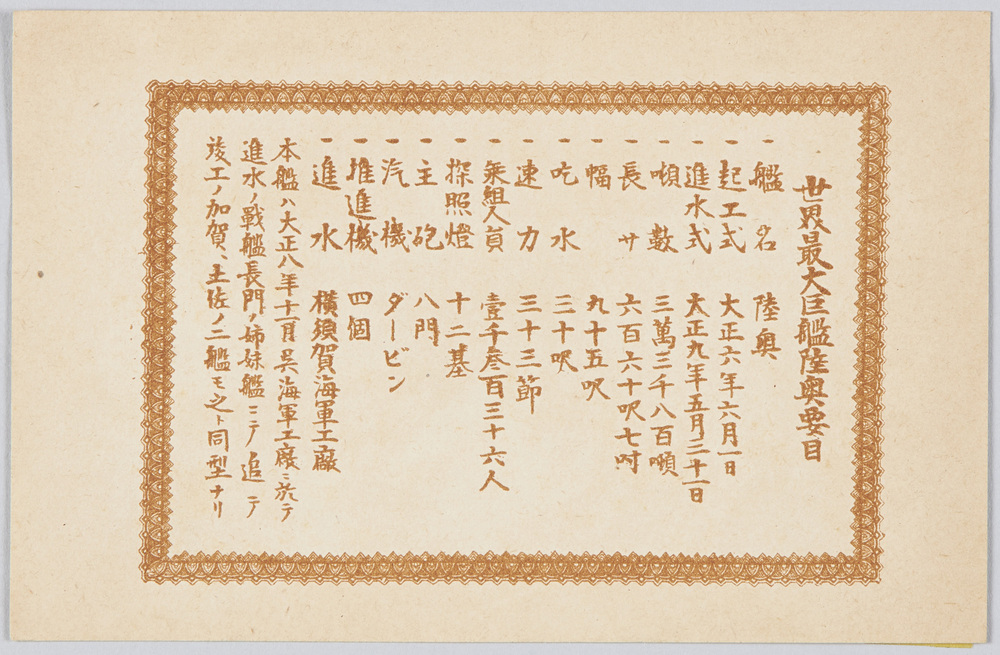 世界最大巨艦陸奥要目
一 艦名 陸奥
一 起工式 大正六年六月一日
一 進水式 大正九年五月三十一日
一 噸數 三萬三千八百噸
一 長サ 六百六十呎七吋
一 幅 九十五呎
一 吃水 三十呎
一 速力 三十三節
一 乘組人員 壹千叁百三十六人
一 探照燈 十二基
一 主砲 八門
一 汽機 ダービン
一 推進機 四個
一 進水 横須賀海軍工廠
本艦ハ大正八年十一月呉海軍工廠ニ於テ
進水ノ戰艦長門ノ姉妹艦ニテ追テ
竣工ノ加賀、土佐ノ二艦モ之ト同型ナリ